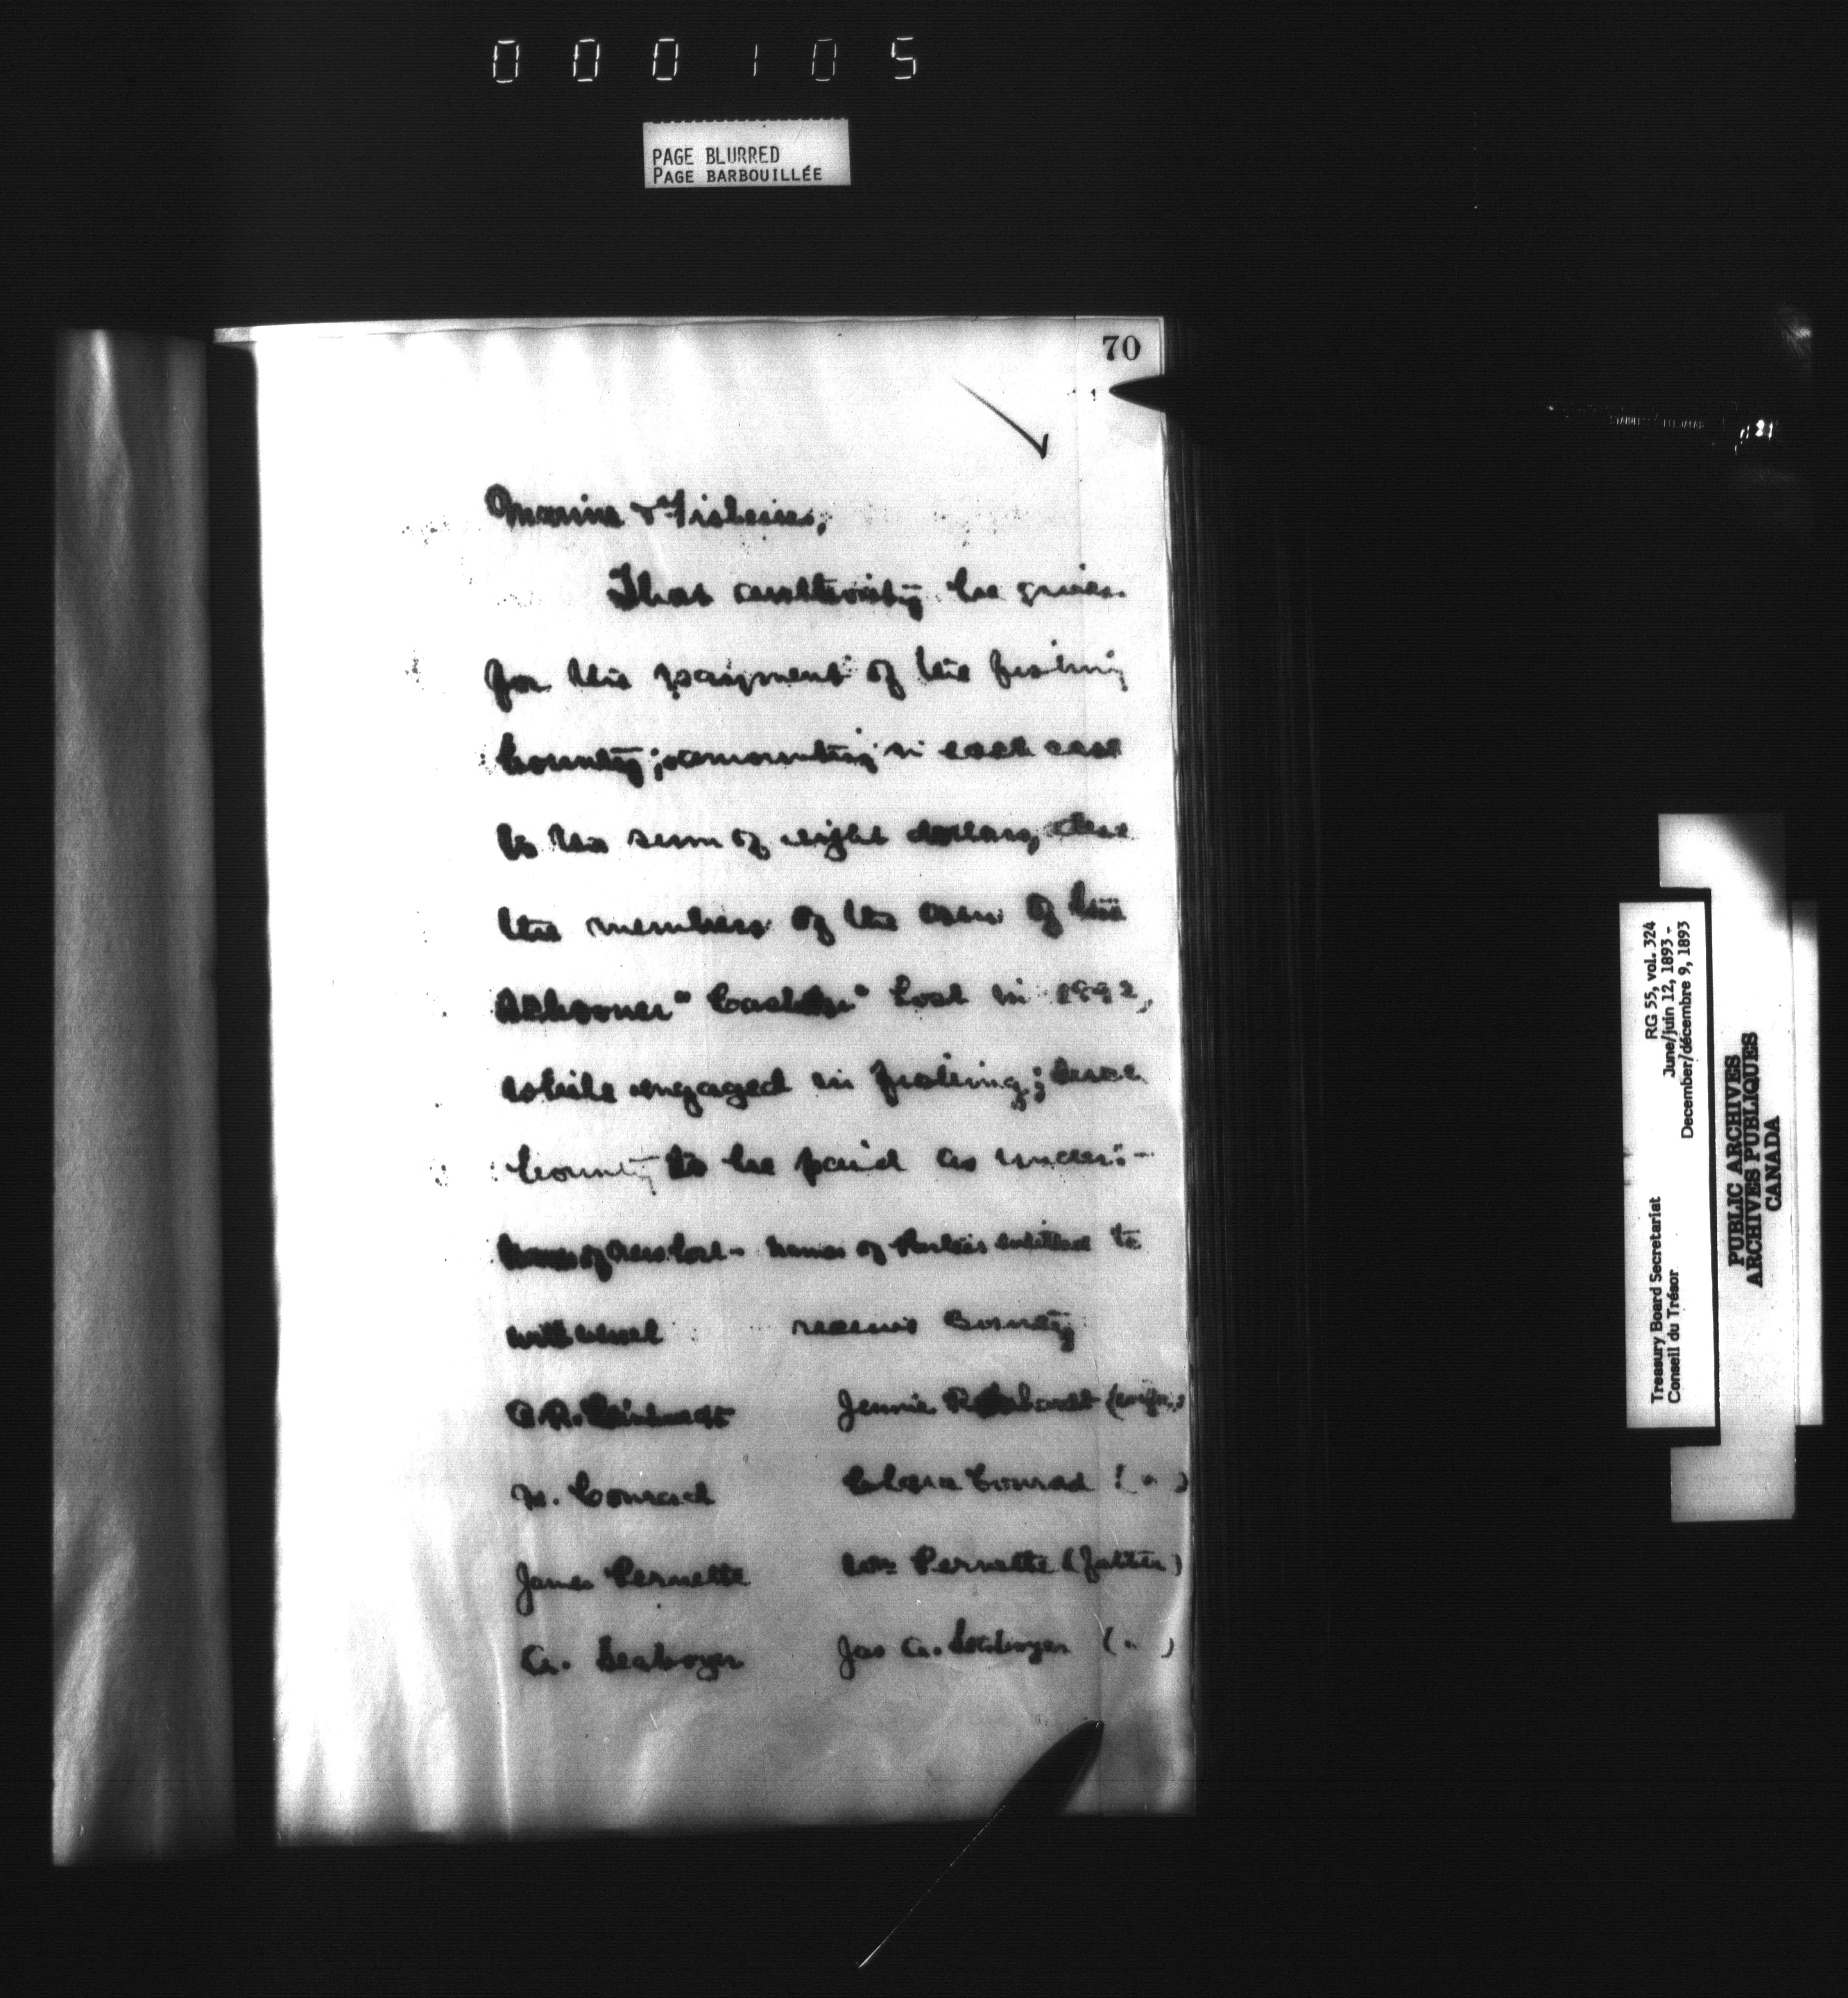 000105
PAGE BLURRED
PAGE BARBOUILLÉE
70
Marine & Fisheries,
That authority be given
for the payment of the fishing
bounty, amounting in each case
to the sum of eight dollars, due
the members of the crew of the
Schooner " " lost in 1892,
while engaged in fishing; such
bounty to be paid as under:-
Names of crew lost - Names of Parties entitled to
with vessel receive Bounty
Reinhardt Jennie Reinhardt (wife)
N. Conrad Conrad ( " )
James Pernette Wm Pernette (father)
A. Seaboyer Jas A. Seaboyer ( " )
Treasury Board Secretariat RG 55, vol. 324
Conseil du Trésor June/juin 12, 1893 -
December/décembre 9, 1893
PUBLIC ARCHIVES
ARCHIVES PUBLIQUES
CANADA